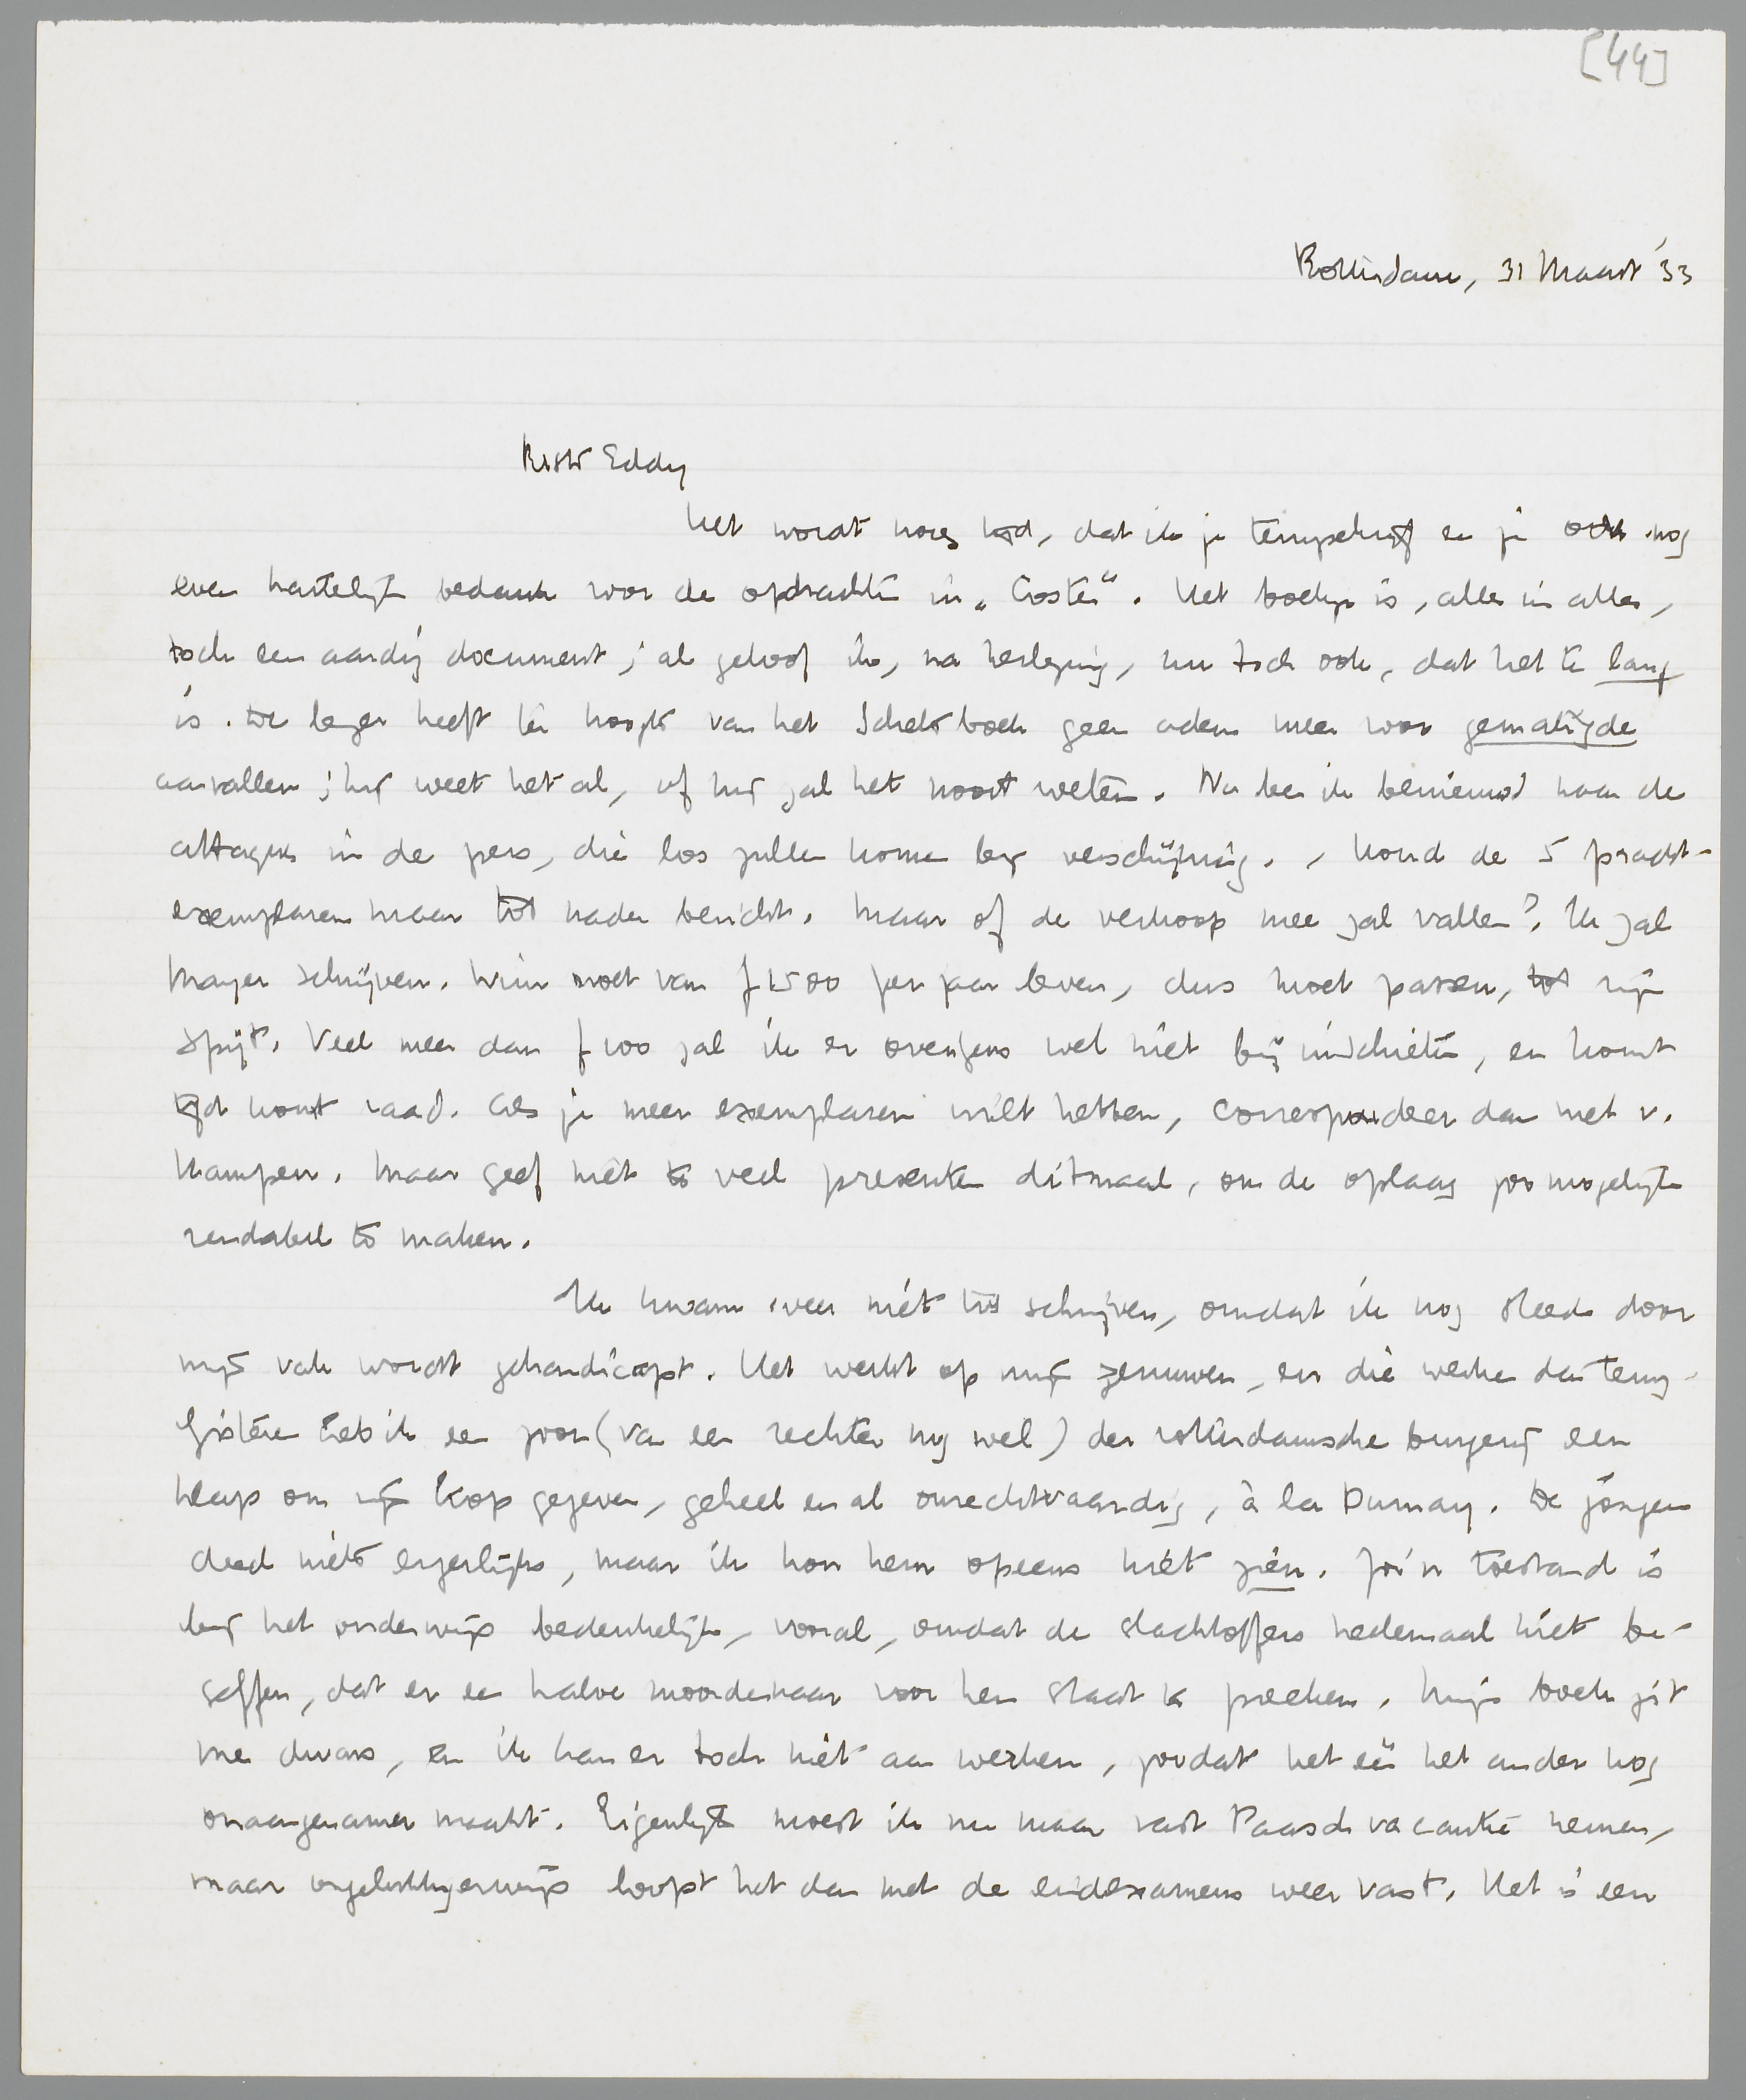 [44]
Rotterdam, 31 Maart '33
Beste Eddy
Het wordt hoog tijd, dat ik je terugschrijf en je ook nog
even hartelijk bedank voor de opdrachten in „Coster". Het boekje is, alles in alles,
toch een aardig document; al geloof ik, na herlezing, nu toch ook, dat het te lang
is. De lezer heeft ter hoogte van het Schetsboek geen adem meer voor gematigde
aanvallen; hij weet het al, of hij zal het nooit weten. Nu ben ik benieuwd naar de
attaques in de pers, die los zullen komen bij verschijning. , houd de 5 pracht-
exemplaren maar tot nader bericht. Maar of de verkoop mee zal vallen? Ik zal
Mayer schrijven. Wim moet van f 1500 per jaar leven, dus moet passen, tot zijn
spijt. Veel meer dan f 100 zal ik er overigens wel niet bij inschieten, en komt
tijd komt raad. Als je meer exemplaren wilt hebben, correspondeer dan met v.
Kampen. Maar geef niet te veel presenten ditmaal, om de oplaag zoo mogelijk
rendabel te maken.
Ik kwam weer niet tot schrijven, omdat ik nog steeds door
mijn vak wordt gehandicapt. Het werkt op mijn zenuwen, en die werken dan terug.
Gisteren heb ik een zoon (van een rechter nog wel) der rotterdamsche burgerij een
klap om zijn kop gegeven, geheel en al onrechtvaardig, à la Dumay. De jongen
deed niets ergerlijks, maar ik kon hem opeens niet zien. Zoo'n toestand is
bij het onderwijs bedenkelijk, vooral, omdat de slachtoffers heelemaal niet be-
seffen, dat er een halve moordenaar voor hen staat te preeken. Mijn boek zit
me dwars, en ik kan er toch niet aan werken, zoodat het één het ander nog
onaangenamer maakt. Eigenlijk moest ik nu maar vast Paaschvacantie nemen,
maar ongelukkigerwijs loopt het dan met de eindexamens weer vast. Het is een